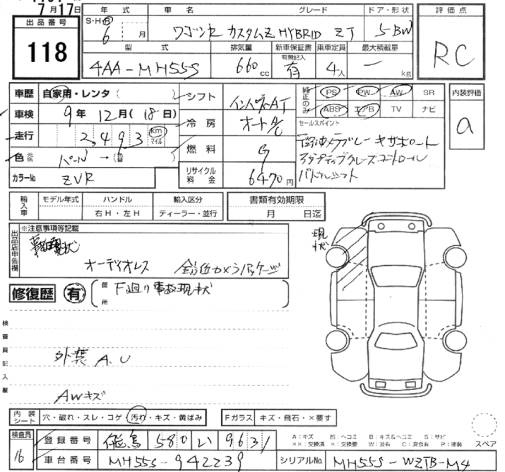 7月17日
出品番号 年式 車名 グレード ドア・形状 評価点
118 S・H 6 月 ワゴンR カスタムZ HYBRID ZT 5 BW RC
型式 排気量 新車保証書 乗車定員 最大積載量
4AA-MH55S 660cc 有 4人 － kg
車歴 自家用・レンタ シフト インパネAT PS PW AW SR 内装評価
車検 9年 12月 (18日) 冷房 オートA/C ABS エアB TV ナビ a
走行 2,493 Km マイル セールスポイント
燃料 G アダプティブクルーズコントロール
色 パール パドルシフト
カラーNo ZVR リサイクル料金 6470円
輸入車 モデル年式 ハンドル 輸入区分 書類有効期限
右H・左H ディーラー・並行 月 日迄
※注意事項等記載 現状
オーディオレス 全方位カメラパッケージ
修復歴 有 箇所 F廻り事故現状
検査員記入欄
外装 A.U
AWキズ
内装シート 穴・破れ・スレ・コゲ・汚れ・キズ・黄ばみ Fガラス キズ・飛石・×要す
A：キズ スペア
16 登録番号 580 い 9631
車台番号 MH55S-942239 シリアルNo MH55S-WZTB-M4